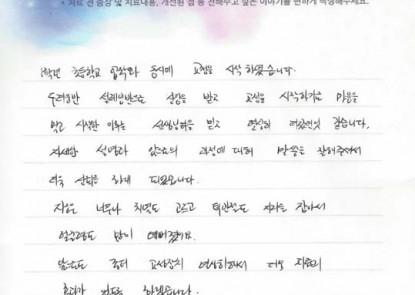 * 치료 전 증상 및 치료내용, 개선된 점 등 전해주고 싶은 이야기를 편하게 작성해주세요.
1학년 초등학교 입학과 동시에 교정을 시작하였습니다.
두려움반 설레임반으로 상담을 받고 교정을 시작하기로 마음을
먹고 시작한 이후는 선생님을 믿고 열심히
자세한 설명과 앞으로의 과정에 대해 말씀을 잘해주셔서
더욱 신뢰를 하게 되었습니다.
지금은 너무나 치열도 고르고 턱관절도 자리를 잡아서
얼굴형도 많이 예뻐졌어요.
앞으로도 좀더 교정장치 열심히해서 더욱
효과가 하겠습니다.